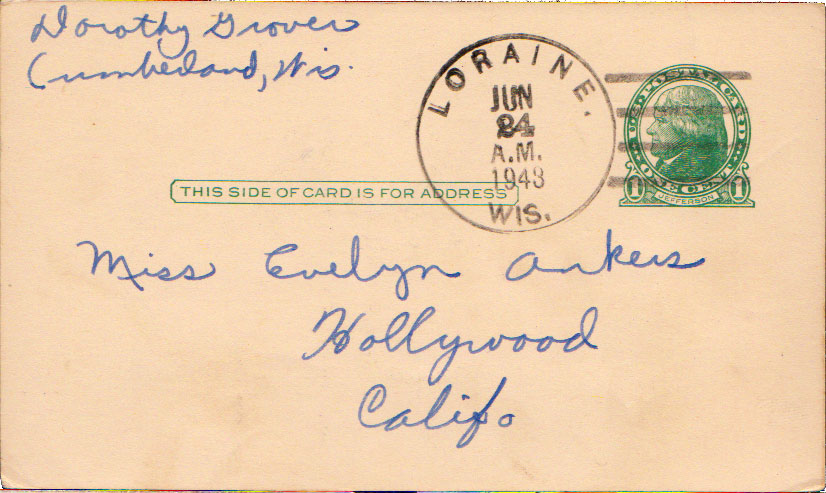 Dorothy Grover
Cumberland, Wis.
LORAINE.
JUN
24
A.M.
1948
WIS.
U.S. POSTAL CARD
ONE CENT
1 JEFFERSON 1
THIS SIDE OF CARD IS FOR ADDRESS
Miss Evelyn Ankers
Hollywood
Califo